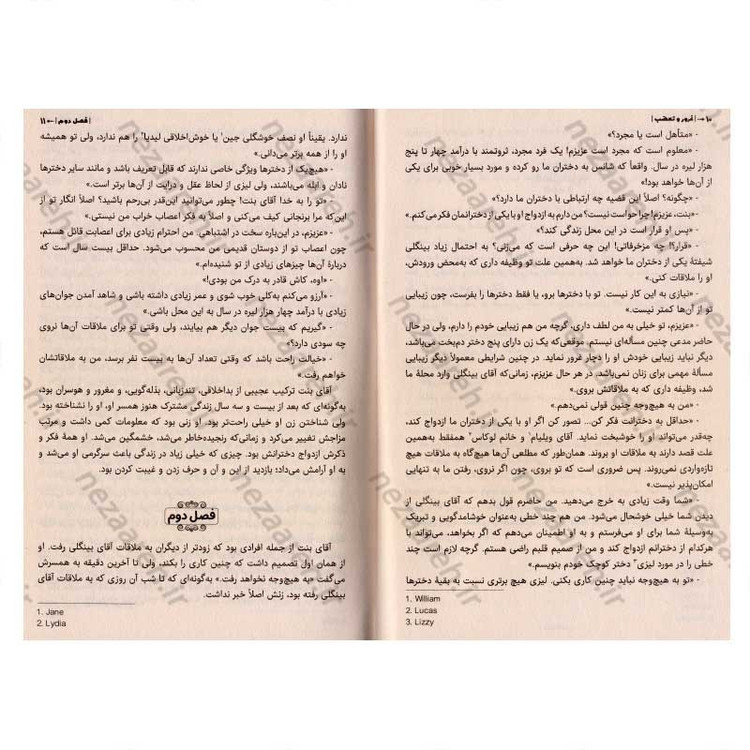 ۱۰ → | غرور و تعصب |
- «متأهل است یا مجرد؟»
- «معلوم است که مجرد است عزیزم! یک فرد مجرد، ثروتمند با درآمد چهار تا پنج
هزار لیره در سال. واقعاً که شانس به دختران ما رو کرده و مورد بسیار خوبی برای یکی
از آن‌ها خواهد بود!»
- «چگونه؟ اصلاً این قضیه چه ارتباطی با دختران ما دارد؟»
- «بنت، عزیزم! چرا حواست نیست؟ من دارم به ازدواج او با یکی از دخترانمان فکر می‌کنم.»
- «پس او قرار است در این محل زندگی کند؟»
- «قرار؟! چه مزخرفاتی! این چه حرفی است که می‌زنی؟ به احتمال زیاد بینگلی
شیفتهٔ یکی از دختران ما خواهد شد. به‌همین علت تو وظیفه داری که به‌محض ورودش،
او را ملاقات کنی.»
- «نیازی به این کار نیست. تو با دخترها برو، یا فقط دخترها را بفرست، چون زیبایی
تو از آن‌ها کمتر نیست.»
- «عزیزم، تو خیلی به من لطف داری، گرچه من هم زیبایی خودم را دارم، ولی در حال
حاضر مدعی چنین مسأله‌ای نیستم. موقعی‌که یک زن دارای پنج دختر دم‌بخت می‌باشد،
دیگر نباید زیبایی خودش او را دچار غرور نماید. در چنین شرایطی معمولاً دیگر زیبایی
مسألهٔ مهمی برای زنان نمی‌باشد. در هر حال عزیزم، زمانی‌که آقای بینگلی وارد محلهٔ ما
شد، وظیفه داری که به ملاقاتش بروی.»
- «من به هیچ‌وجه چنین قولی نمی‌دهم.»
- «حداقل به دخترانت فکر کن... تصور کن اگر او با یکی از دختران ما ازدواج کند،
چه‌قدر می‌تواند او را خوشبخت نماید. آقای ویلیام¹ و خانم لوکاس² هم‌فقط به‌همین
علت قصد دارند به ملاقات او بروند. همان‌طور که مطلعی آن‌ها هیچ‌گاه به ملاقات هیچ
تازه‌واردی نمی‌روند. پس ضروری است که تو بروی، چون اگر نروی، رفتن ما به تنهایی
امکان‌پذیر نیست.»
- «شما وقت زیادی به خرج می‌دهید. من حاضرم قول بدهم که آقای بینگلی از
دیدن شما خیلی خوشحال می‌شود. من هم چند خطی به‌عنوان خوشامدگویی و تبریک
به‌وسیلهٔ شما برای او می‌فرستم و به او اطمینان می‌دهم که اگر بخواهد، می‌تواند با
هرکدام از دخترانم ازدواج کند و من از صمیم قلبم راضی هستم. گرچه لازم است چند
خطی را در مورد لیزی³ دختر کوچک خودم بنویسم.»
- «تو به هیچ‌وجه نباید چنین کاری بکنی. لیزی هیچ برتری نسبت به بقیهٔ دخترها
1. William
2. Lucas
3. Lizzy
| فصل دوم | ← ۱۱
ندارد. یقیناً او نصف خوشگلی جین¹ یا خوش‌اخلاقی لیدیا² را هم ندارد، ولی تو همیشه
او را از همه برتر می‌دانی.»
- «هیچ‌یک از دخترها ویژگی خاصی ندارند که قابل تعریف باشد و مانند سایر دخترها
نادان و ابله می‌باشند، ولی لیزی از لحاظ عقل و درایت از آن‌ها برتر است.»
- «تو را به خدا آقای بنت! چطور می‌توانید این‌قدر بی‌رحم باشید؟ اصلاً انگار تو از
این‌که مرا برنجانی کیف می‌کنی و اصلاً به فکر اعصاب خراب من نیستی.»
- «عزیزم، در این‌باره سخت در اشتباهی. من احترام زیادی برای اعصابت قائل هستم،
چون اعصاب تو از دوستان قدیمی من محسوب می‌شود. حداقل بیست سال است که
دربارهٔ آن‌ها چیزهای زیادی از تو شنیده‌ام.»
- «اوه، کاش قادر به درک من بودی!»
- «آرزو می‌کنم به‌کلی خوب شوی و عمر زیادی داشته باشی و شاهد آمدن جوان‌های
زیادی با درآمد چهار هزار لیره در سال به این محل باشی.»
- «گیریم که بیست جوان دیگر هم بیایند، ولی وقتی تو برای ملاقات آن‌ها نروی
چه سودی دارد؟»
- «خیالت راحت باشد که وقتی تعداد آن‌ها به بیست نفر برسد، من به ملاقاتشان
خواهم رفت.»
آقای بنت ترکیب عجیبی از بداخلاقی، تندزبانی، بذله‌گویی، و مغرور و هوسران بود،
به‌گونه‌ای که بعد از بیست و سه سال زندگی مشترک هنوز همسر او، او را نشناخته بود.
ولی شناختن زن او خیلی راحت‌تر بود. او زنی بود که معلومات کمی داشت و مرتب
مزاجش تغییر می‌کرد و زمانی‌که رنجیده‌خاطر می‌شد، خشمگین می‌شد. او همهٔ فکر و
ذکرش ازدواج دخترانش بود. چیزی که خیلی زیاد در زندگی باعث سرگرمی او می‌شد و
به او آرامش می‌داد؛ بازدید از این و آن و حرف زدن و غیبت کردن بود.
فصل دوم
آقای بنت از جمله افرادی بود که زودتر از دیگران به ملاقات آقای بینگلی رفت. او
از همان اول تصمیم داشت که چنین کاری را بکند، ولی تا آخرین دقیقه به همسرش
می‌گفت «به هیچ‌وجه نخواهد رفت.» به‌گونه‌ای که تا شب آن روزی که به ملاقات آقای
بینگلی رفته بود، زنش اصلاً خبر نداشت.
1. Jane
2. Lydia
nezaareh.ir